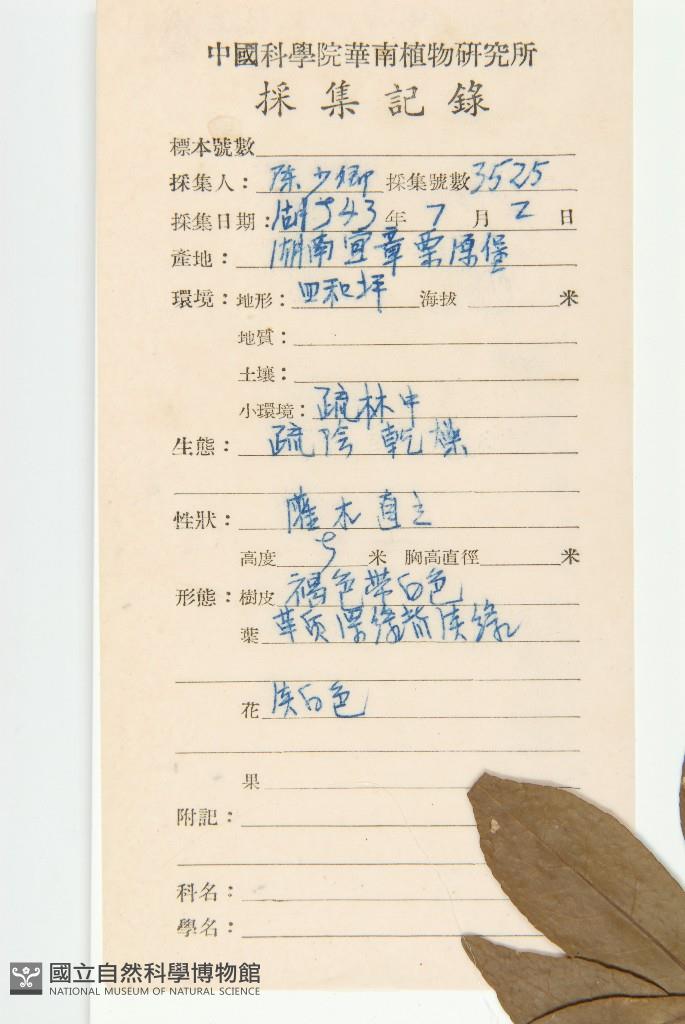 中國科學院華南植物研究所
採集記錄
標本號數
採集人：陈少卿 採集號數3525
採集日期：1943年7月2日
產地：湖南宜章栗原堡
環境：地形：四和坪 海拔 米
地質：
土壤：
小環境：疏林中
生態：疏陰 乾燥
性狀：灌木直立
高度5米 胸高直徑 米
形態：樹皮 褐色帶白色
葉 革质深绿背淡绿
花 淡白色
果
附記：
科名：
學名：
國立自然科學博物館
NATIONAL MUSEUM OF NATURAL SCIENCE